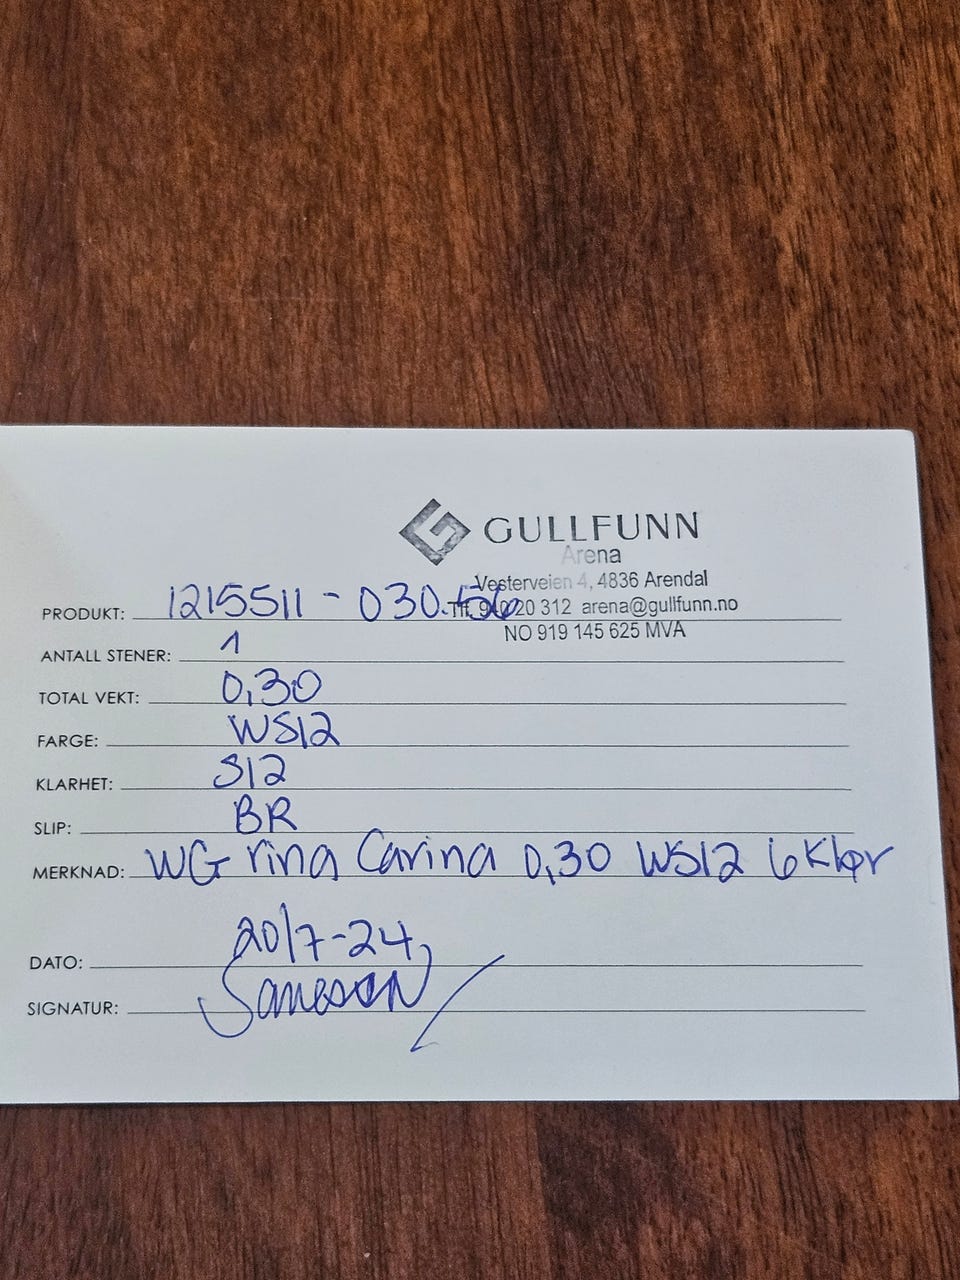 GULLFUNN
Arena
Vesterveien 4, 4836 Arendal
Tlf. 940 20 312 arena@gullfunn.no
NO 919 145 625 MVA
PRODUKT: 1215511 - 030.56
ANTALL STENER: 1
TOTAL VEKT: 0,30
FARGE: WSI2
KLARHET: SI2
SLIP: BR
MERKNAD: WG ring Carina 0,30 WSI2 6
DATO: 20/7-24
SIGNATUR: